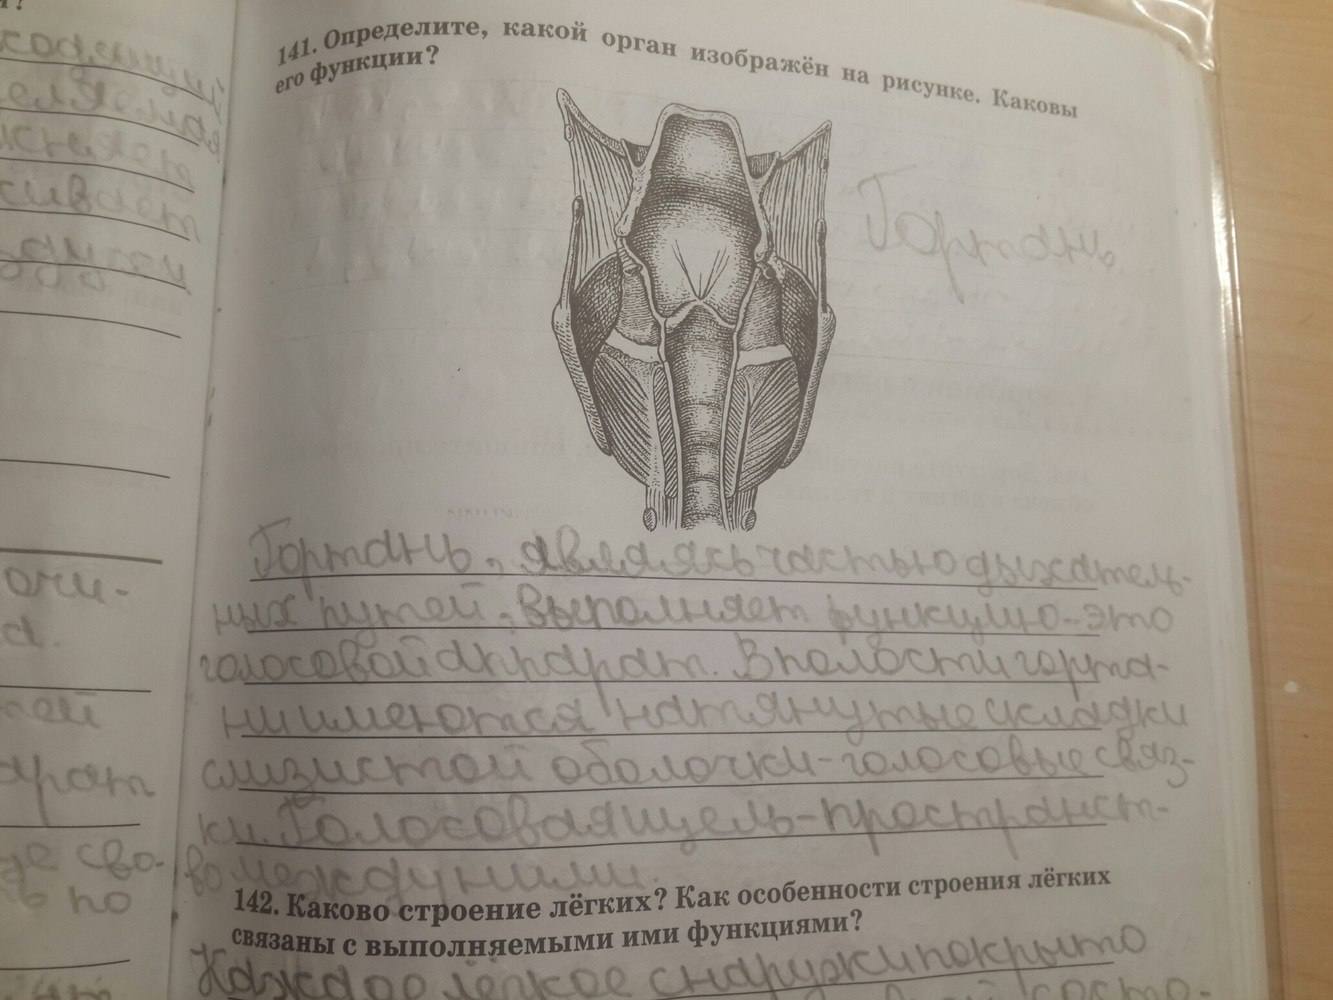 141. Определите, какой орган изображён на рисунке. Каковы
его функции?
Гортань
Гортань, являясь частью дыхатель-
ных путей, выполняет функцию-это
голосовой аппарат. В полости горта-
ни имеются натянутые складки
слизистой оболочки-голосовые связ-
ки. Голосовая щель-пространст-
во между ними.
142. Каково строение лёгких? Как особенности строения лёгких
связаны с выполняемыми ими функциями?
Каждое лёгкое снаружи покрыто